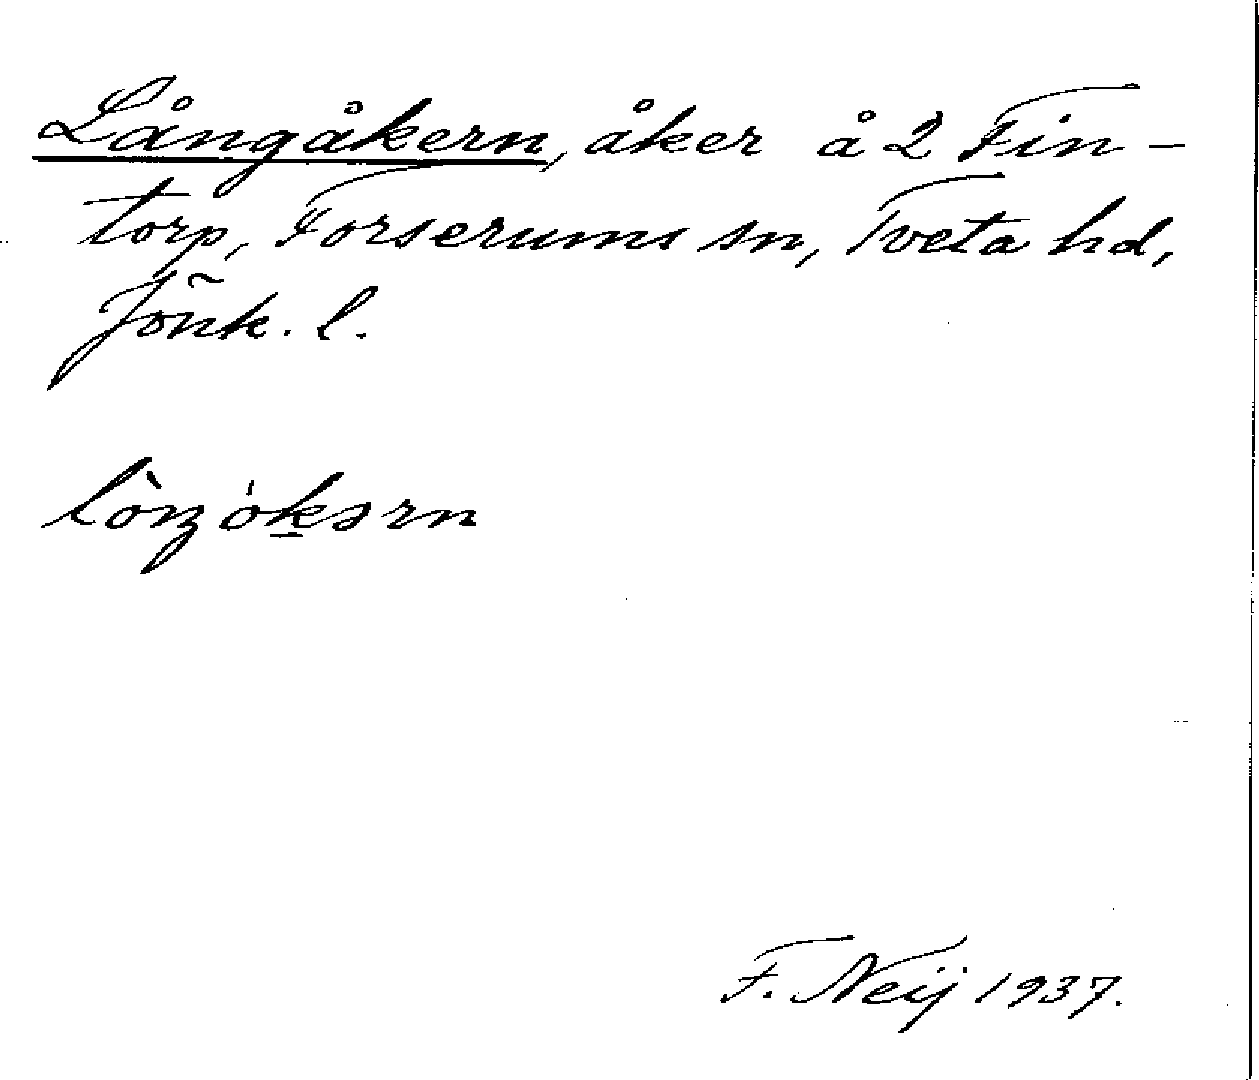 Långåkern, åker å 2 Fin-
torp, Forserums sn, Tveta hd,
Jönk. l.
lòŋókərn
F. Neij 1937.